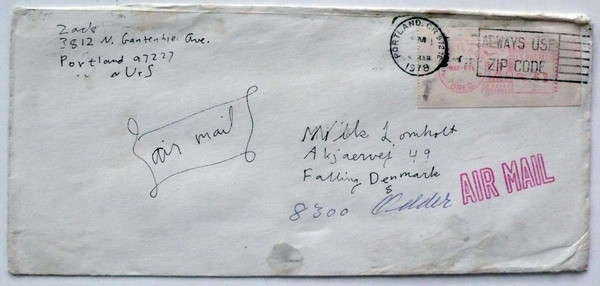 Zack
3812 N. Gantenbein Ave.
Portland 97227
U.S
PORTLAND, OR
PM
MAR
1978
ALWAYS USE
ZIP CODE
air mail
Lomholt
Akjaervej 49
Falling Denmark
8300 Odder
AIR MAIL